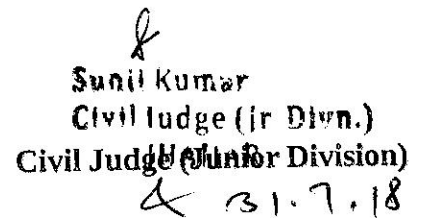 Sunil Kumar
Civil Judge (jr Divn.)
Civil Judge (Junior Division)
31.7.18